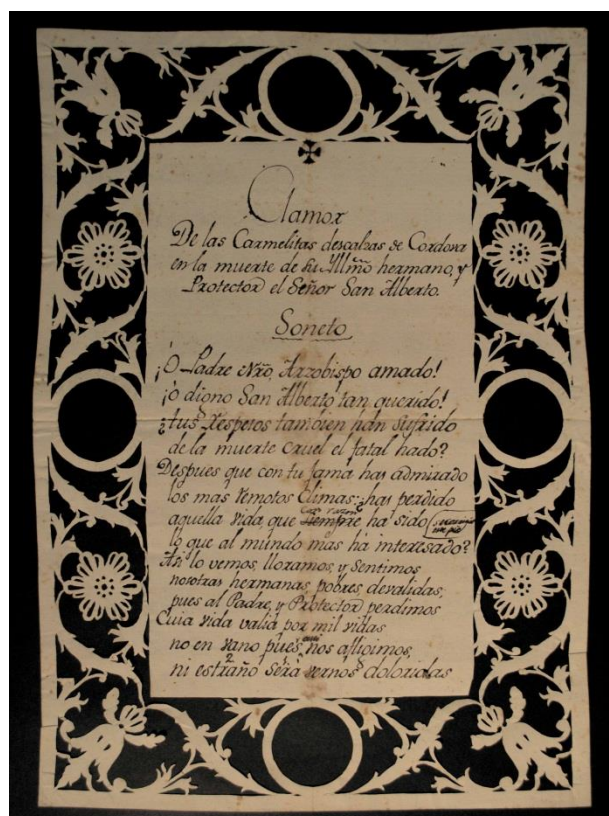 Clamor
De las Carmelitas descalzas de Cordova
en la muerte de su Yllmõ hermano, y
Protector el Señor San Alberto.
Soneto
¡O Padre Nrõ, Arzobispo amado!
¡ò digno San Alberto tan querido!
¿tus respetos tambien hán sufrido
de la muerte cruel el fatal hado?
Despues que con tu fama has admirado
los mas remotos Climas: ¿has perdido
con razon
aquella vida, que siempre ha sido
lo que al mundo mas ha interesado?
Asi lo vemos, lloramos, y sentimos
nosotras hermanas, pobres, devalidas,
pues al Padre, y Protector perdimos
Cuia vida valia por mil vidas
no en vano pues, aqui nos afligimos,
ni estraño será vernos doloridas